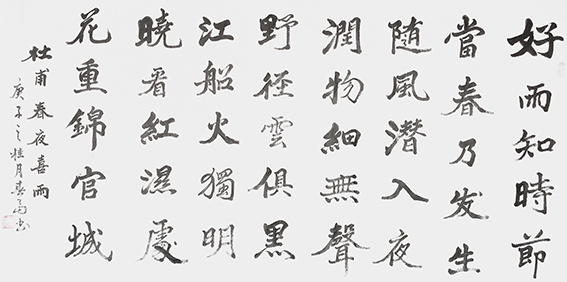 好雨知時節
當春乃发生
随風潜入夜
潤物細無聲
野径雲俱黑
江船火獨明
曉看紅濕處
花重錦官城
杜甫春夜喜雨
庚子之桂月